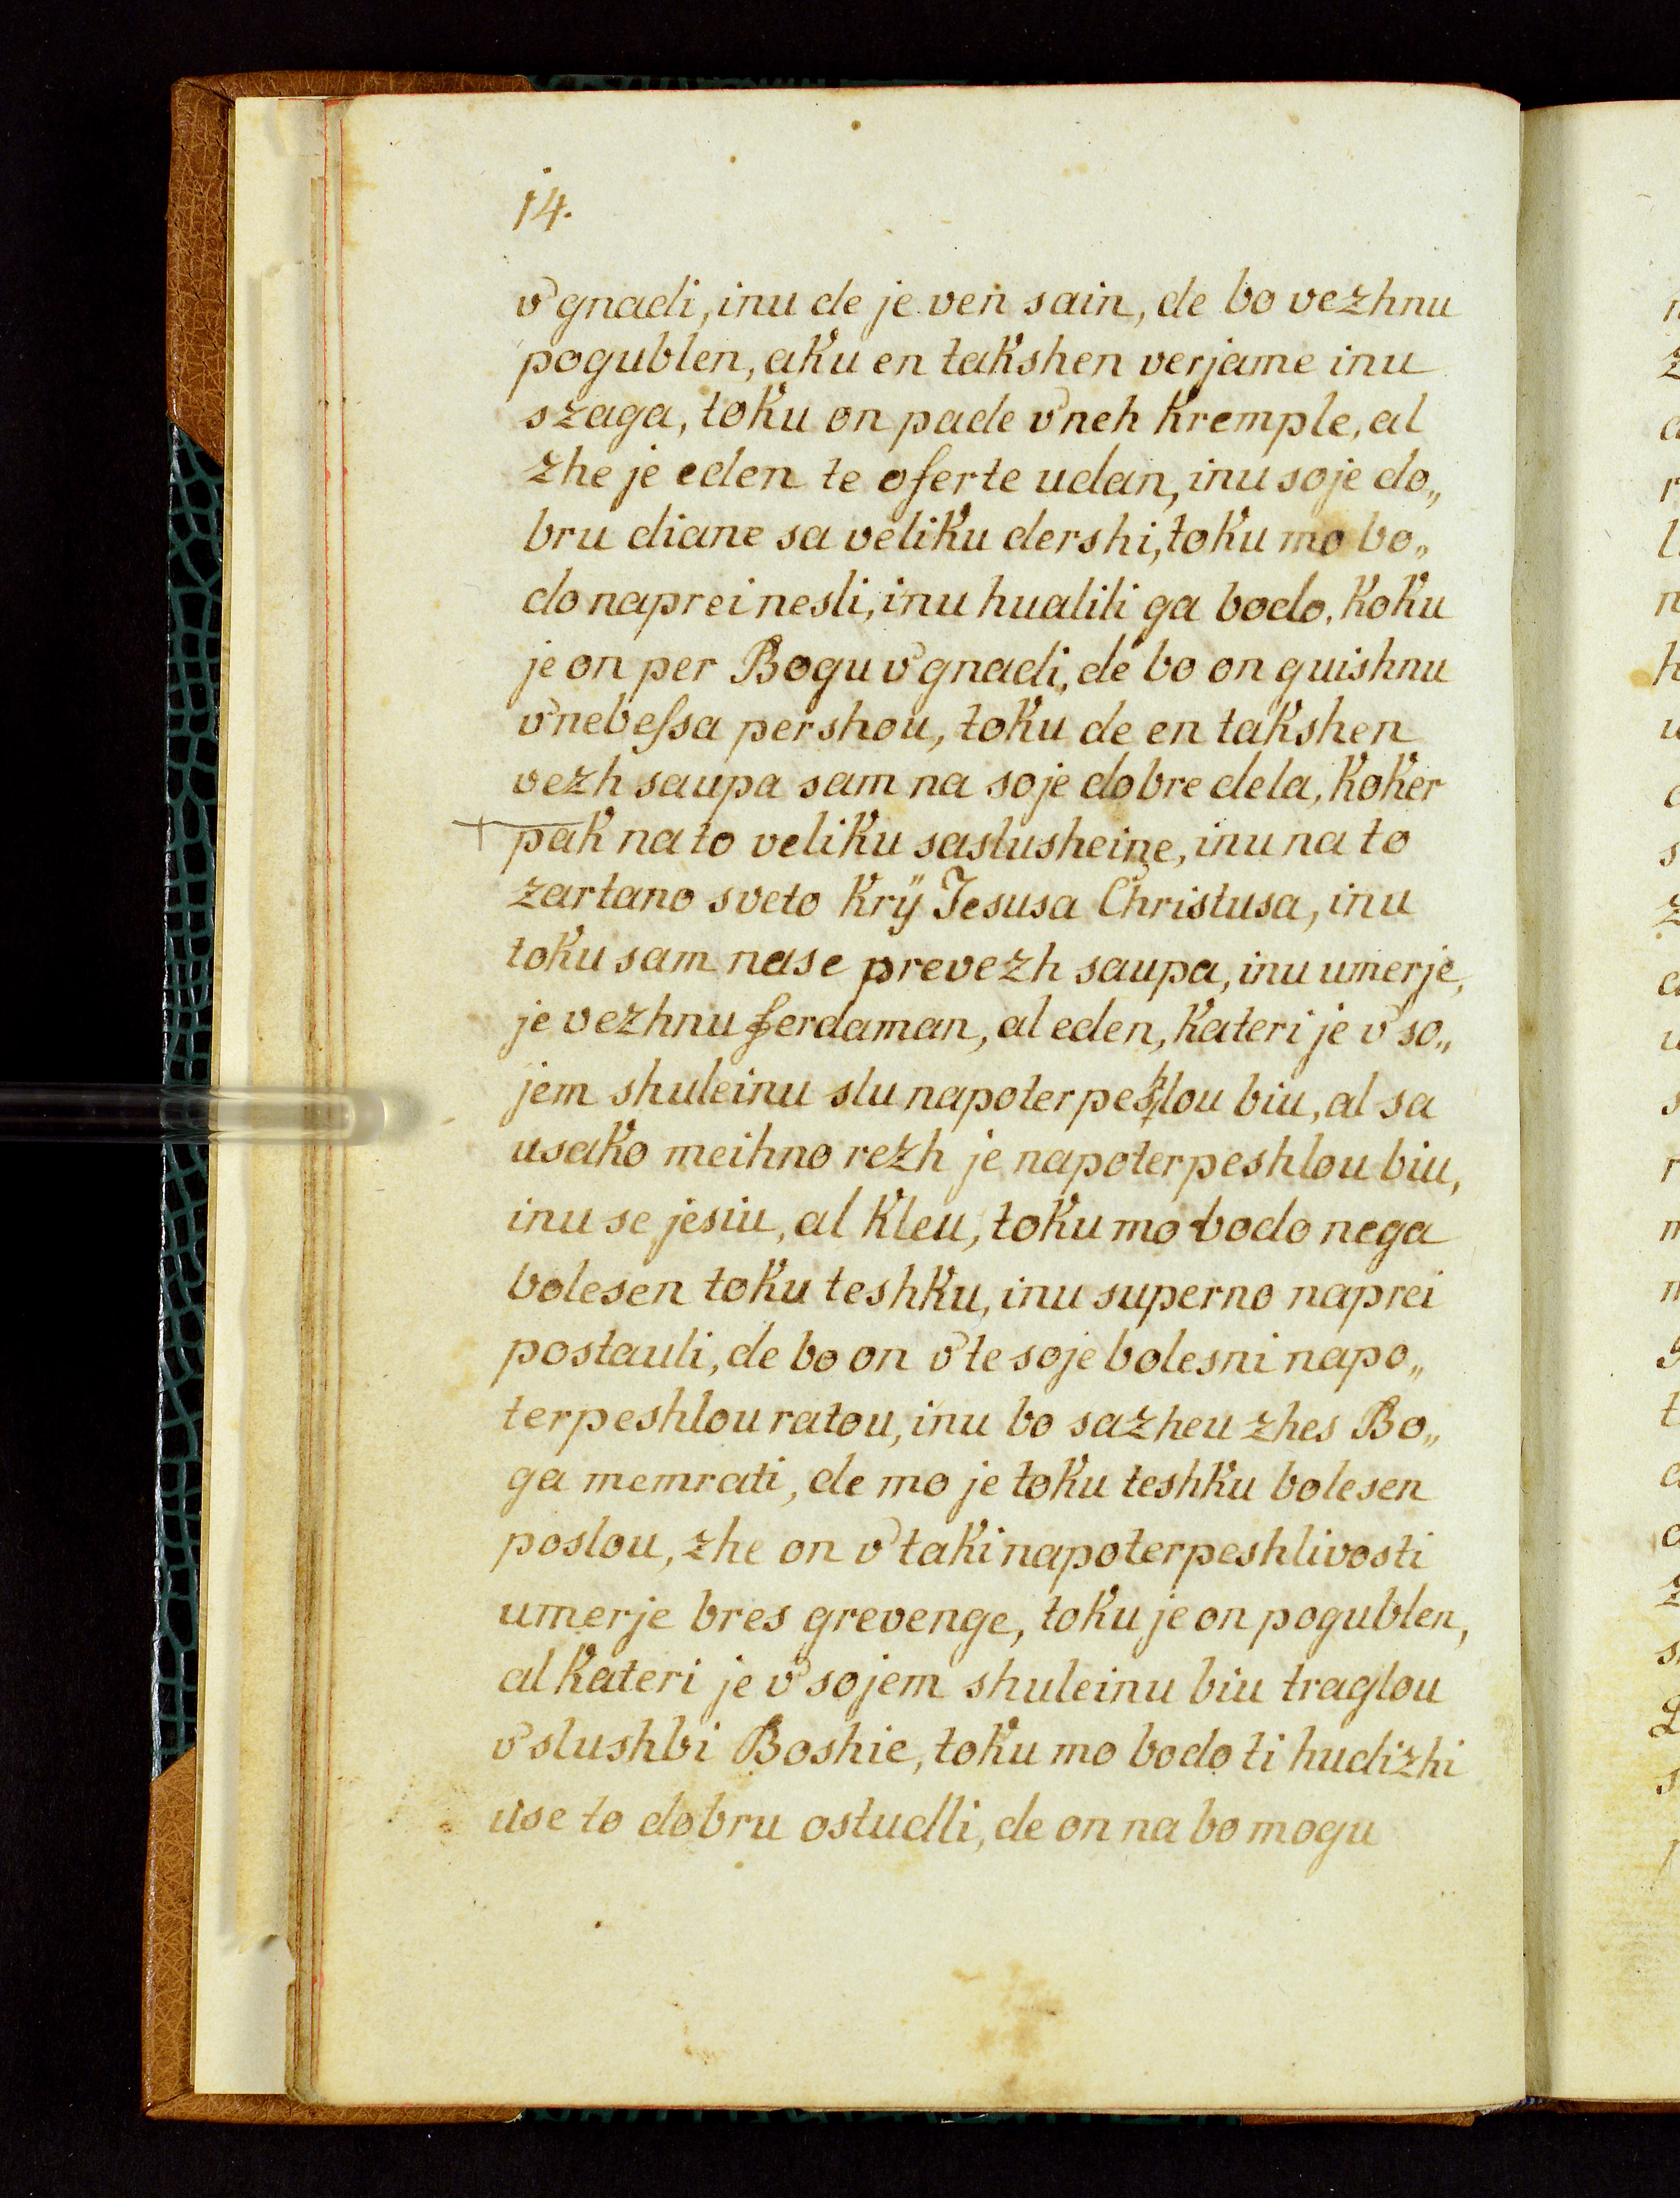 14.
v gnadi, inu de je ven sain, de bo vezhnu
pogublen, aku en takshen verjame inu
szaga, toku on pade v neh kremple, al
zhe je eden te oferte udan, inu soje do„
bru diane sa veliku dershi, toku mo bo„
do naprei nesli, inu hualili ga bodo, koku
je on per Bogu v gnadi, de bo on guishnu
v nebeſsa pershou, toku de en takshen
vezh saupa sam na soje dobre dela, koker
pak na to veliku saslusheine, inu na to
zartano sveto Krÿ Jesusa Christusa, inu
toku sam nase prevezh saupa, inu umerje,
je vezhnu ferdaman, al eden, kateri je v so„
jem shuleinu slu napoterpeshlou biu, al sa
usako meihno rezh je napoterpeshlou biu,
inu se jesiu, al kleu, toku mo bodo nega
bolesen toku teshku, inu superno naprei
postauli, de bo on v te soje bolesni napo„
terpeshlou ratou, inu bo sazheu zhes Bo„
ga memrati, de mo je toku teshku bolesen
poslou, zhe on v taki napoterpeshlivosti
umerje bres grevenge, toku je on pogublen,
al kateri je v sojem shuleinu biu traglou
v slushbi Boshie, toku mo bodo ti hudizhi
use to dobru ostudli, de on na bo mogu